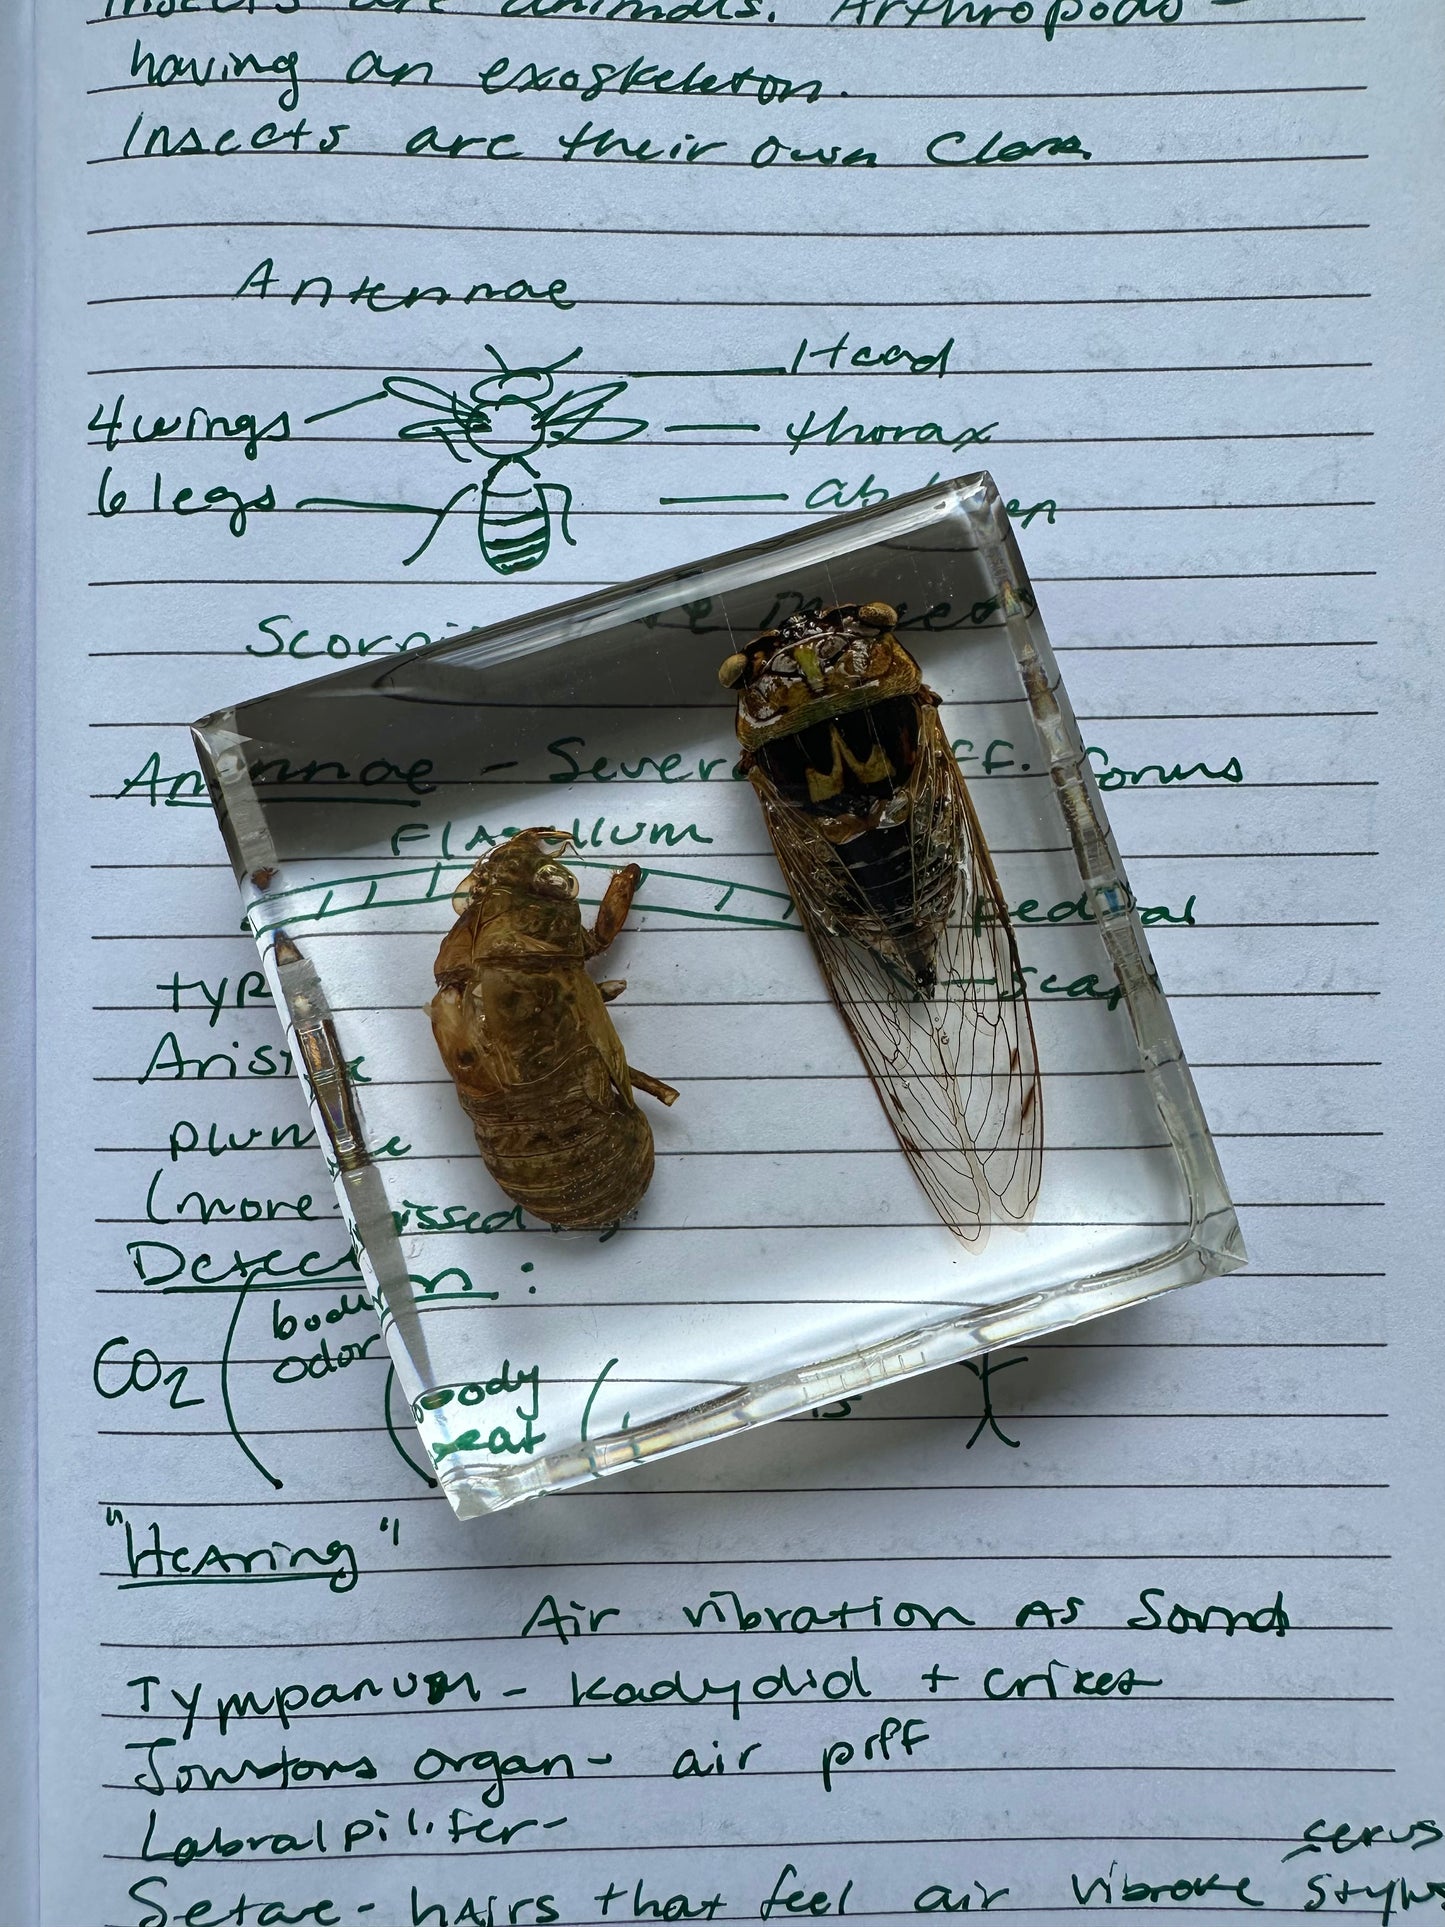 Insects are animals. Arthropods -
having an exoskeleton.
Insects are their own Class.
Antennae
Head
4 wings
thorax
6 legs
Antennae - Several Diff. forms
Flagellum
Pedical
typ
Arist
plum
(more
Detection :
CO2
body
odor
body
heat
"Hearing"
Air vibration as Sound
Tympanum - kadydid + criket
Jonstons organ - air piff
Labral pilifer -
cerus
Setae - hairs that feel air vibrate